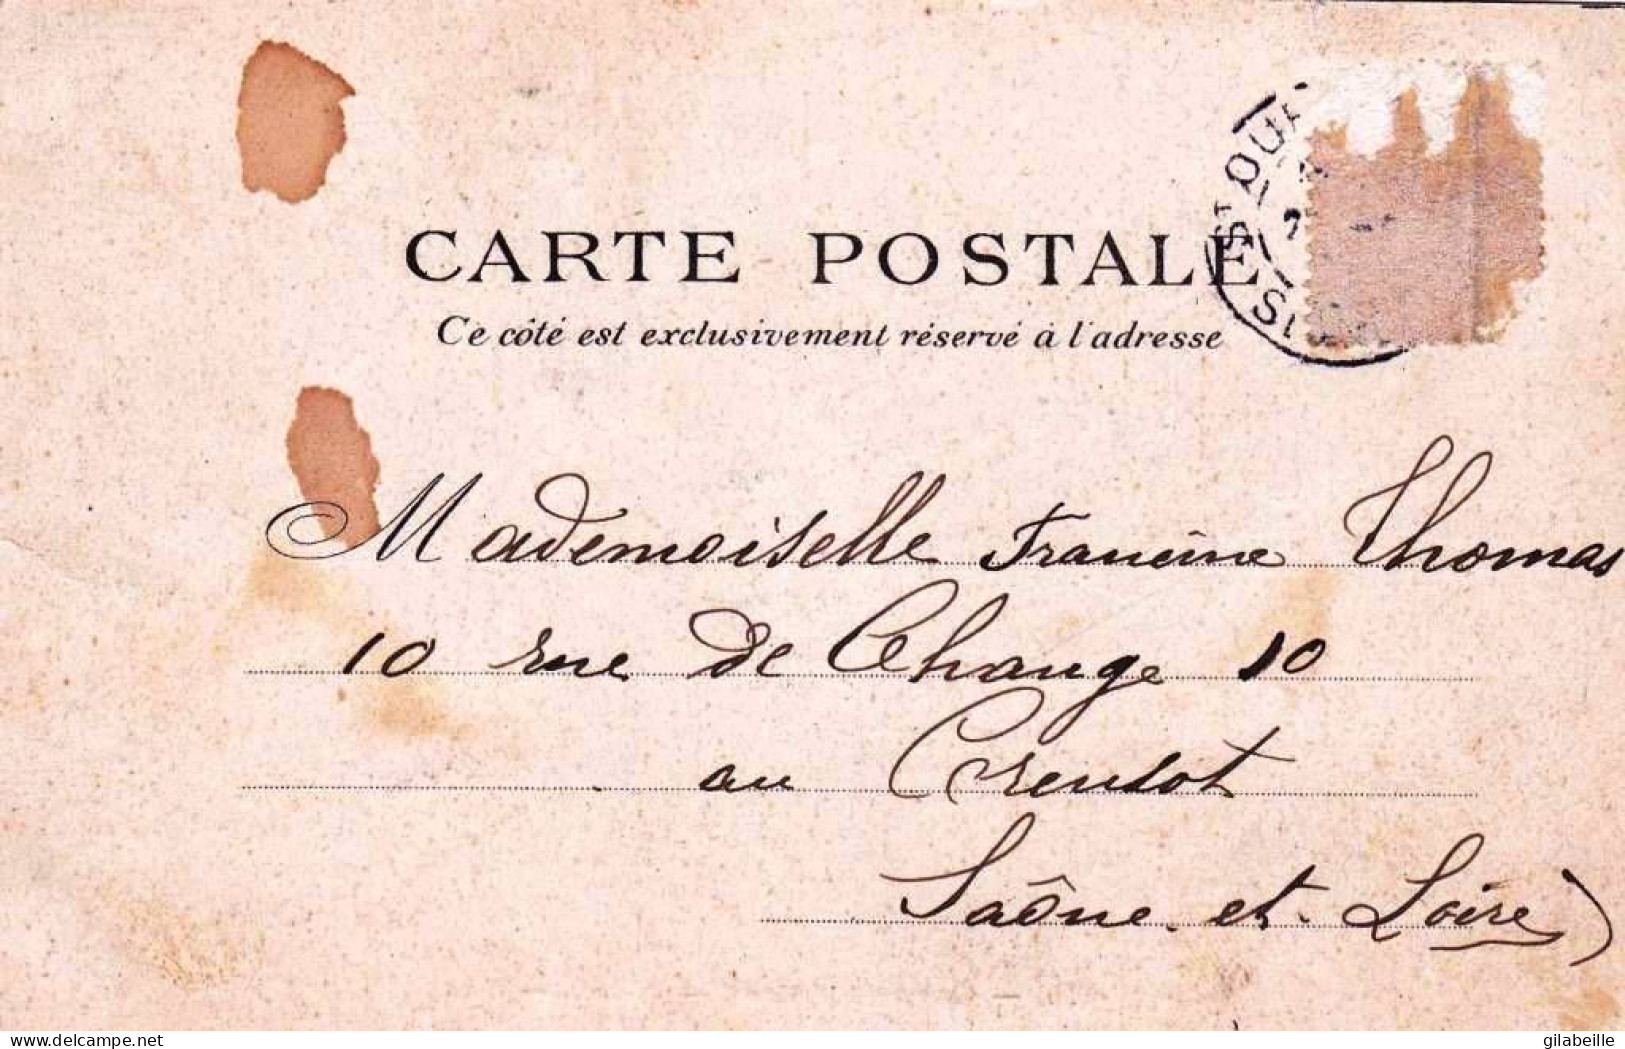 CARTE POSTALE
Ce côté est exclusivement réservé à l'adresse
Mademoiselle Francine Thomas
10 rue de Change 10
au Creusot
Saône et Loire)
www.delcampe.net
gilabeille